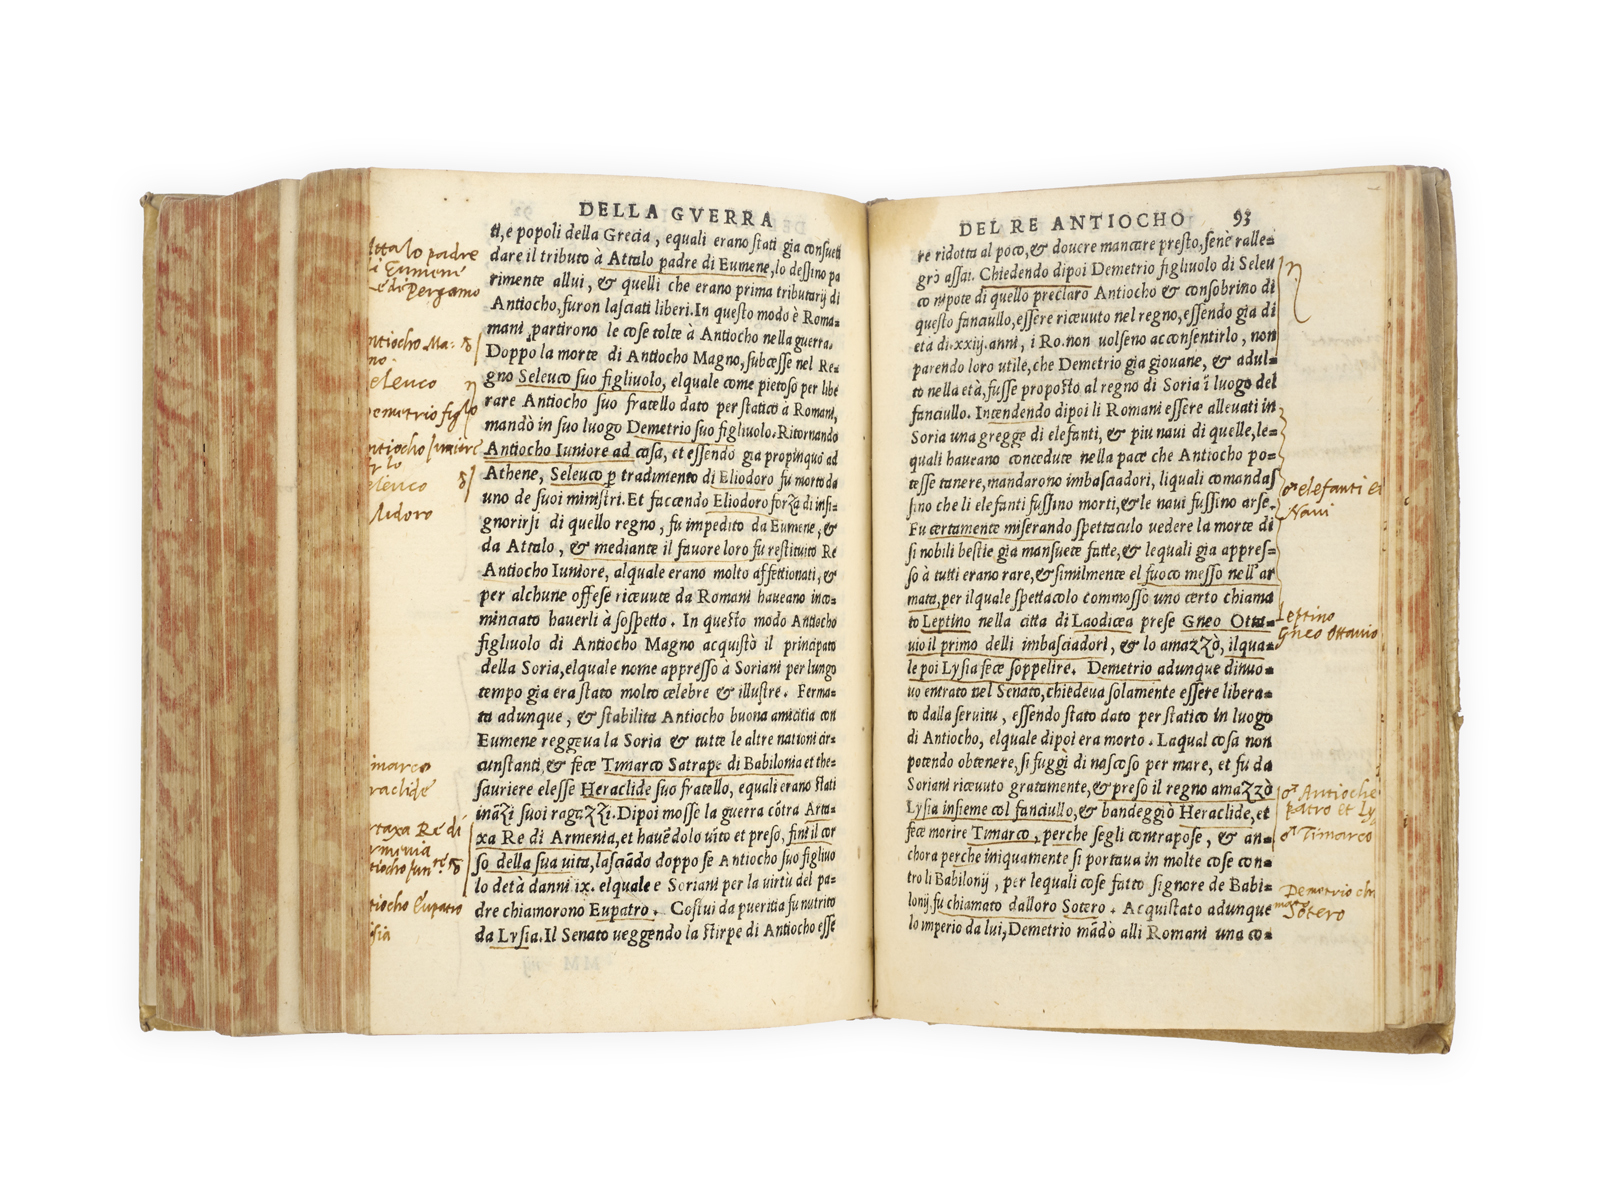 DELLA GVERRA
ti, e popoli della Grecia, equali erano ſtati gia conſueti
dare il tributo à Attalo padre di Eumene, lo deſſino pa
rimente allui, & quelli che erano prima tributarij di
Antiocho, furon laſciati liberi. In queſto modo è Roma=
mani partirono le coſe tolte à Antiocho nella guerra.
Doppo la morte di Antiocho Magno, ſucceſſe nel Re=
gno Seleuco ſuo figliuolo, elquale come pietoſo per libe
rare Antiocho ſuo fratello dato per ſtatico à Romani,
mandò in ſuo luogo Demetrio ſuo figliuolo. Ritornando
Antiocho Iuniore ad caſa, et eſſendo gia propinquo ad
Athene, Seleuco ꝑ tradimento di Eliodoro fu morto da
uno de ſuoi miniſtri. Et faccendo Eliodoro forza di inſi=
gnorirſi di quello regno, fu impedito da Eumene, &
da Attalo, & mediante il fauore loro fu reſtituito Re
Antiocho Iuniore, alquale erano molto affettionati, &
per alchune offeſe riceuute da Romani haueano inco=
minciato hauerli à ſoſpetto. In queſto modo Antiocho
figliuolo di Antiocho Magno acquiſtò il principato
della Soria, elquale nome appreſſo à Soriani per lungo
tempo gia era ſtato molto celebre & illuſtre. Ferma=
to adunque, & ſtabilita Antiocho buona amicitia con
Eumene reggeua la Soria & tutte le altre nationi cir=
cunſtanti, & fece Timarco Satrape di Babilonia et the=
ſauriere eleſſe Heraclide ſuo fratello, equali erano ſtati
inãzi ſuoi ragazzi. Dipoi moſſe la guerra cõtra Arta=
xa Re di Armenia, et hauẽdolo uito et preſo, finì il cor
ſo della ſua uita, laſciãdo doppo ſe Antiocho ſuo figliuo
lo detà danni ix. elquale e Soriani per la uirtù del pa=
dre chiamorono Eupatro. Coſtui da pueritia fu nutrito
da Lyſia. Il Senato ueggendo la ſtirpe di Antiocho eſſe
MM iij
Attalo padre
di Eumene
Re di Pergamo
Antiocho Ma:
no
Seleuco
Demetrio figlo
Antiocho Juniore
Seleuco
Timarco
Heraclide
Artaxa Re di
Armenia
Antiocho Eupatro
Lysia
DEL RE ANTIOCHO 93
re ridotta al poco, & douere mancare preſto, ſenè ralle=
grò aſſai. Chiedendo dipoi Demetrio figliuolo di Seleu
co nipote di quello preclaro Antiocho & conſobrino di
queſto fanciullo, eſſere riceuuto nel regno, eſſendo gia di
età di.xxiij.anni, i Ro.non uolſeno acconſentirlo, non
parendo loro utile, che Demetrio gia giouane, & adul=
to nella età, fuſſe propoſto al regno di Soria ĩ luogo del
fanciullo. Intendendo dipoi li Romani eſſere alleuati in
Soria una gregge di elefanti, & piu naui di quelle, le=
quali haueano concedute nella pace che Antiocho po=
teſſe tenere, mandarono imbaſciadori, liquali comandaſ
ſino che li elefanti fuſſino morti, & le naui fuſſino arſe.
Fu certamente miſerando ſpettaculo uedere la morte di
ſi nobili beſtie gia manſuete fatte, & lequali gia appreſ=
ſo à tutti erano rare, & ſimilmente el fuoco meſſo nell'ar
mata, per ilquale ſpettacolo commoſſo uno certo chiama
to Leptino nella citta di Laodicea preſe Gneo Otta=
uio il primo delli imbaſciadori, & lo amazzò, ilqua=
le poi Lyſia fece ſoppelire. Demetrio adunque dinuo=
uo entrato nel Senato, chiedeua ſolamente eſſere libera=
to dalla ſeruitu, eſſendo ſtato dato per ſtatico in luogo
di Antiocho, elquale dipoi era morto. Laqual coſa non
potendo obtenere, ſi fuggì di naſcoſo per mare, et fu da
Soriani riceuuto gratamente, & preſo il regno amazzò
Lyſia inſieme col fanciullo, & bandeggiò Heraclide, et
fece morire Timarco, perche ſegli contrapoſe, & an=
chora perche iniquamente ſi portaua in molte coſe con=
tro li Babilonij, per lequali coſe fatto ſignore de Babi=
lonij fu chiamato dalloro Sotero. Acquiſtato adunque
lo imperio da lui, Demetrio mãdò alli Romani una co=
elefanti et
Naui
Leptino
Gneo Ottauio
Antioche
patro et Ly
Timarco
Demetrio chi
mato
Sotero